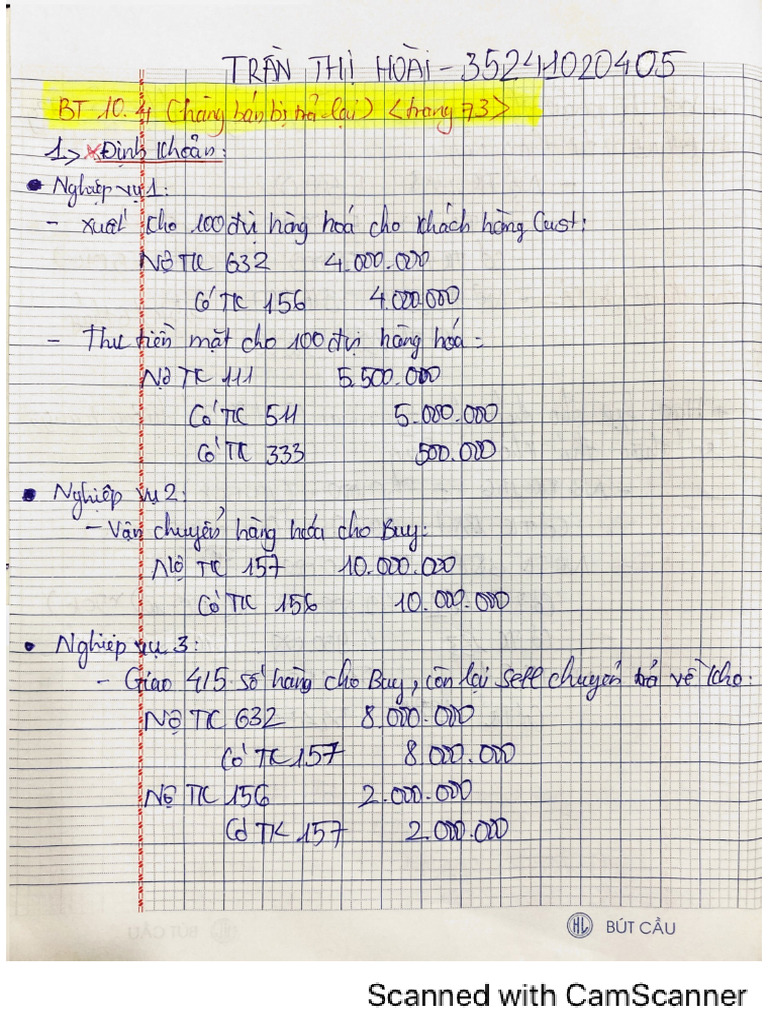 TRẦN THỊ HOÀI - 35241020405
BT 10.4 (hàng bán bị trả lại) <trang 73>
1.> Định khoản:
• Nghiệp vụ 1:
- Xuất kho 100 đvị hàng hoá cho khách hàng Cust:
Nợ TK 632 4.000.000
Có TK 156 4.000.000
- Thu tiền mặt cho 100 đvị hàng hoá:
Nợ TK 111 5.500.000
Có TK 511 5.000.000
Có TK 333 500.000
• Nghiệp vụ 2:
- Vận chuyển hàng hoá cho Buy:
Nợ TK 157 10.000.000
Có TK 156 10.000.000
• Nghiệp vụ 3:
- Giao 4/5 số hàng cho Buy, còn lại Sell chuyển trả về kho:
Nợ TK 632 8.000.000
Có TK 157 8.000.000
Nợ TK 156 2.000.000
Có TK 157 2.000.000
HL BÚT CẦU
Scanned with CamScanner